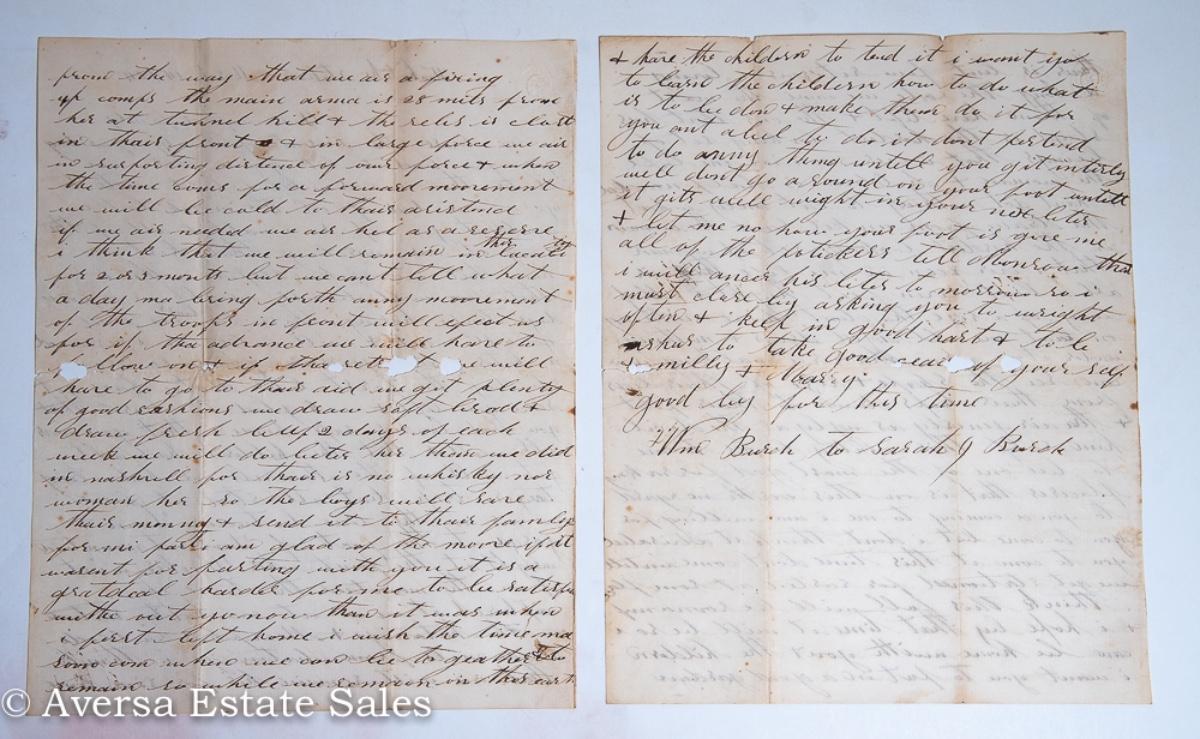 from the way that we air a firing
up comps the main arma is 25 mils from
her at tunnel hill & the rebs is clost
in thair front & in large force we air
in suporting distend of our force & when
the time coms for a forward moovement
we will be cald to thair asistend
if we air needed we air hel as a reserve
i think that we will remain in this
for 2 or 3 months but we cant tell what
a day ma bring forth anny moovement
of the troops in front will efect us
for if tha advance we will have to
follow on & if tha we will
have to go to thair aid we git plenty
of good rashions we draw soft bread &
draw fresh beef 2 days of each
week we will do beter her than we did
in nashvill for thair is no whisky nor
woman her so the boys will save
thair monny & send it to thair familys
for mi part i am glad of the moove if it
warent for parting with you it is a
gratdeal harder for me to be satisfi
withe out you now than it was when
i first left home i wish the time ma
soon com when we can be to geather & to
remain so while we remain on this earth
& have the childern to tend it i want you
to learn the childern how to do what
is to be don & make them do it for
you ant abel to do it dont pertend
to do anny thing untell you git intirly
well dont go a round on your foot untell
it gits well wright in your nex leter
& let me no how your foot is give me
all of the pertickers tell Monrow that
i will ancer his leter to morrow so i
must close by asking you to wright
often & keep in good hart & to be
shur to take good cear of your self
& milly & Marry
good by for this time
Wm Burch to Sarah J Burch
© Aversa Estate Sales